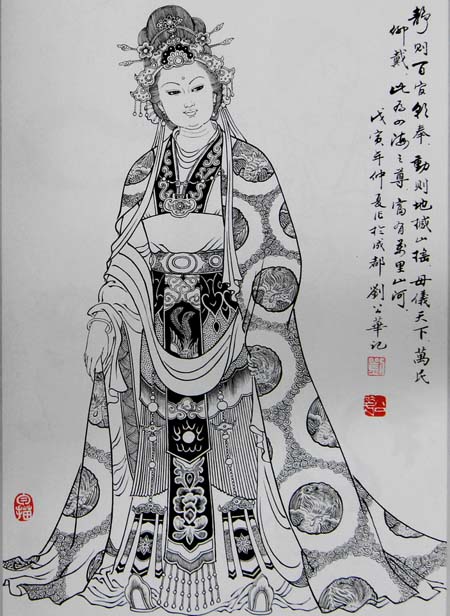 静则百官朝奉 動则地撼山摇 母儀天下 萬民
仰戴 此为四海之尊 富有萬里山河
戊寅年仲夏作於成都 劉公華记